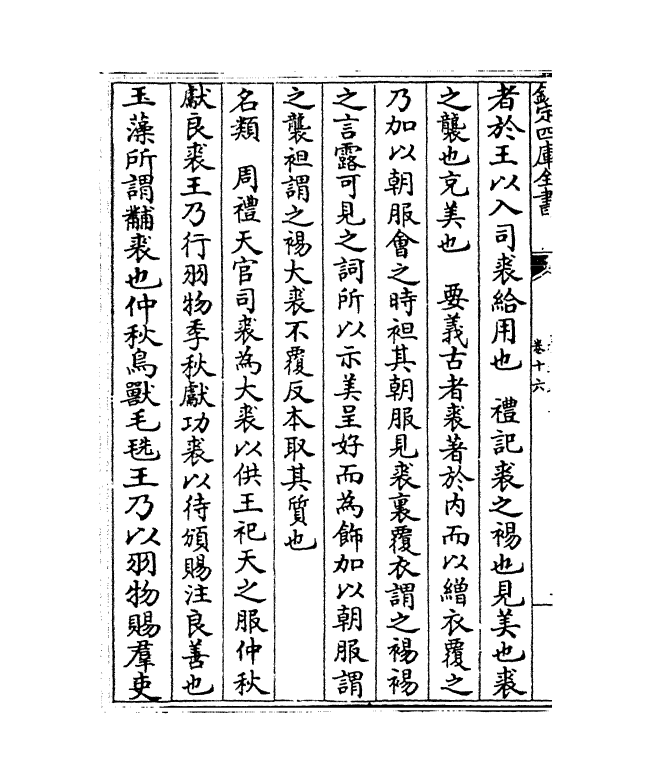 欽定四庫全書
卷十六
者於王以入司裘給用也　禮記裘之裼也見美也裘
之襲也充美也　要義古者裘著於内而以繒衣覆之
乃加以朝服會之時袒其朝服見裘裏覆衣謂之裼裼
之言露可見之詞所以示美呈好而為飾加以朝服謂
之襲袒謂之裼大裘不覆反本取其質也
名類　周禮天官司裘為大裘以供王祀天之服仲秋
獻良裘王乃行羽物季秋獻功裘以待頒賜注良善也
玉藻所謂黼裘也仲秋鳥獸毛毨王乃以羽物賜羣吏